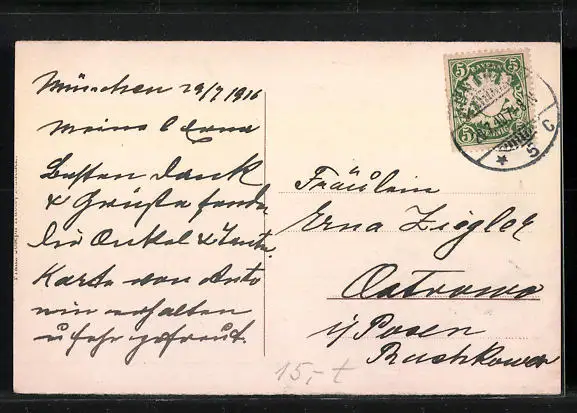 München 29/7 1910
Meine l Erna
Besten Dank
& Grüße sendn
dir Onkel & Tante.
Karte von Anto
wir erhalten
u sehr gefreut.
Fräulein
Erna Ziegler
Ostrowo
i/ Posen
15,-t
BAYERN
5 5
5 5
PFENNIG
* 5 c